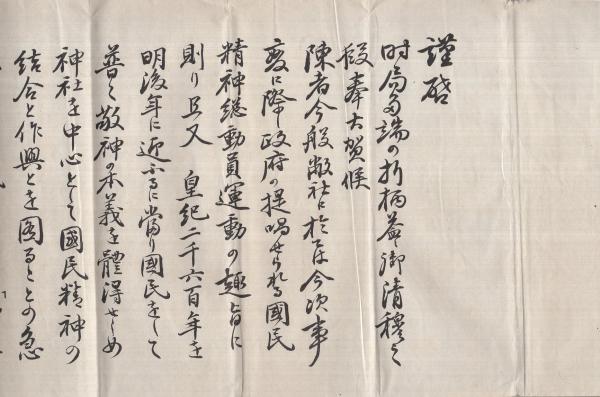 謹啓
時局多端の折柄益々御清穆之
段奉大賀候
陳者今般弊社に於ては今次事
変に際し政府の提唱せられる國民
精神総動員運動の趣旨に
則り且又 皇紀二千六百年を
明後年に近ふるに當り國民をして
普く敬神の本義を體得せしめ
神社を中心として國民精神の
結合と作興とを圖るとの急